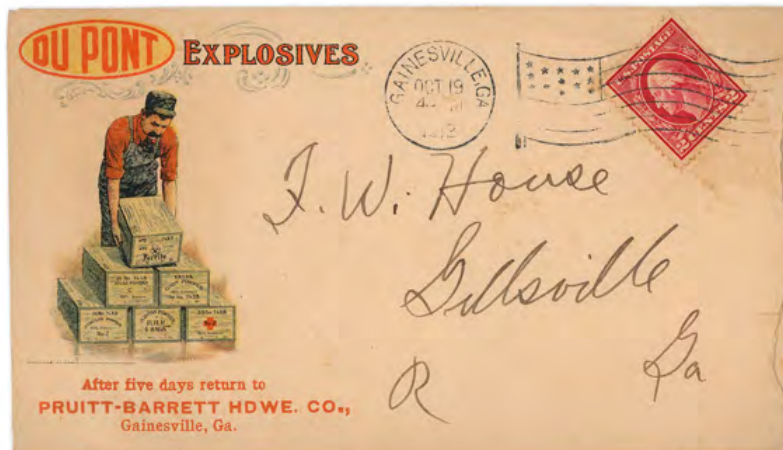 DU PONT EXPLOSIVES
GAINESVILLE, GA
OCT 19
1912
U.S. POSTAGE
2
2
F. W. House
Gillsville
R
Ga
After five days return to
PRUITT-BARRETT HDWE. CO.,
Gainesville, Ga.